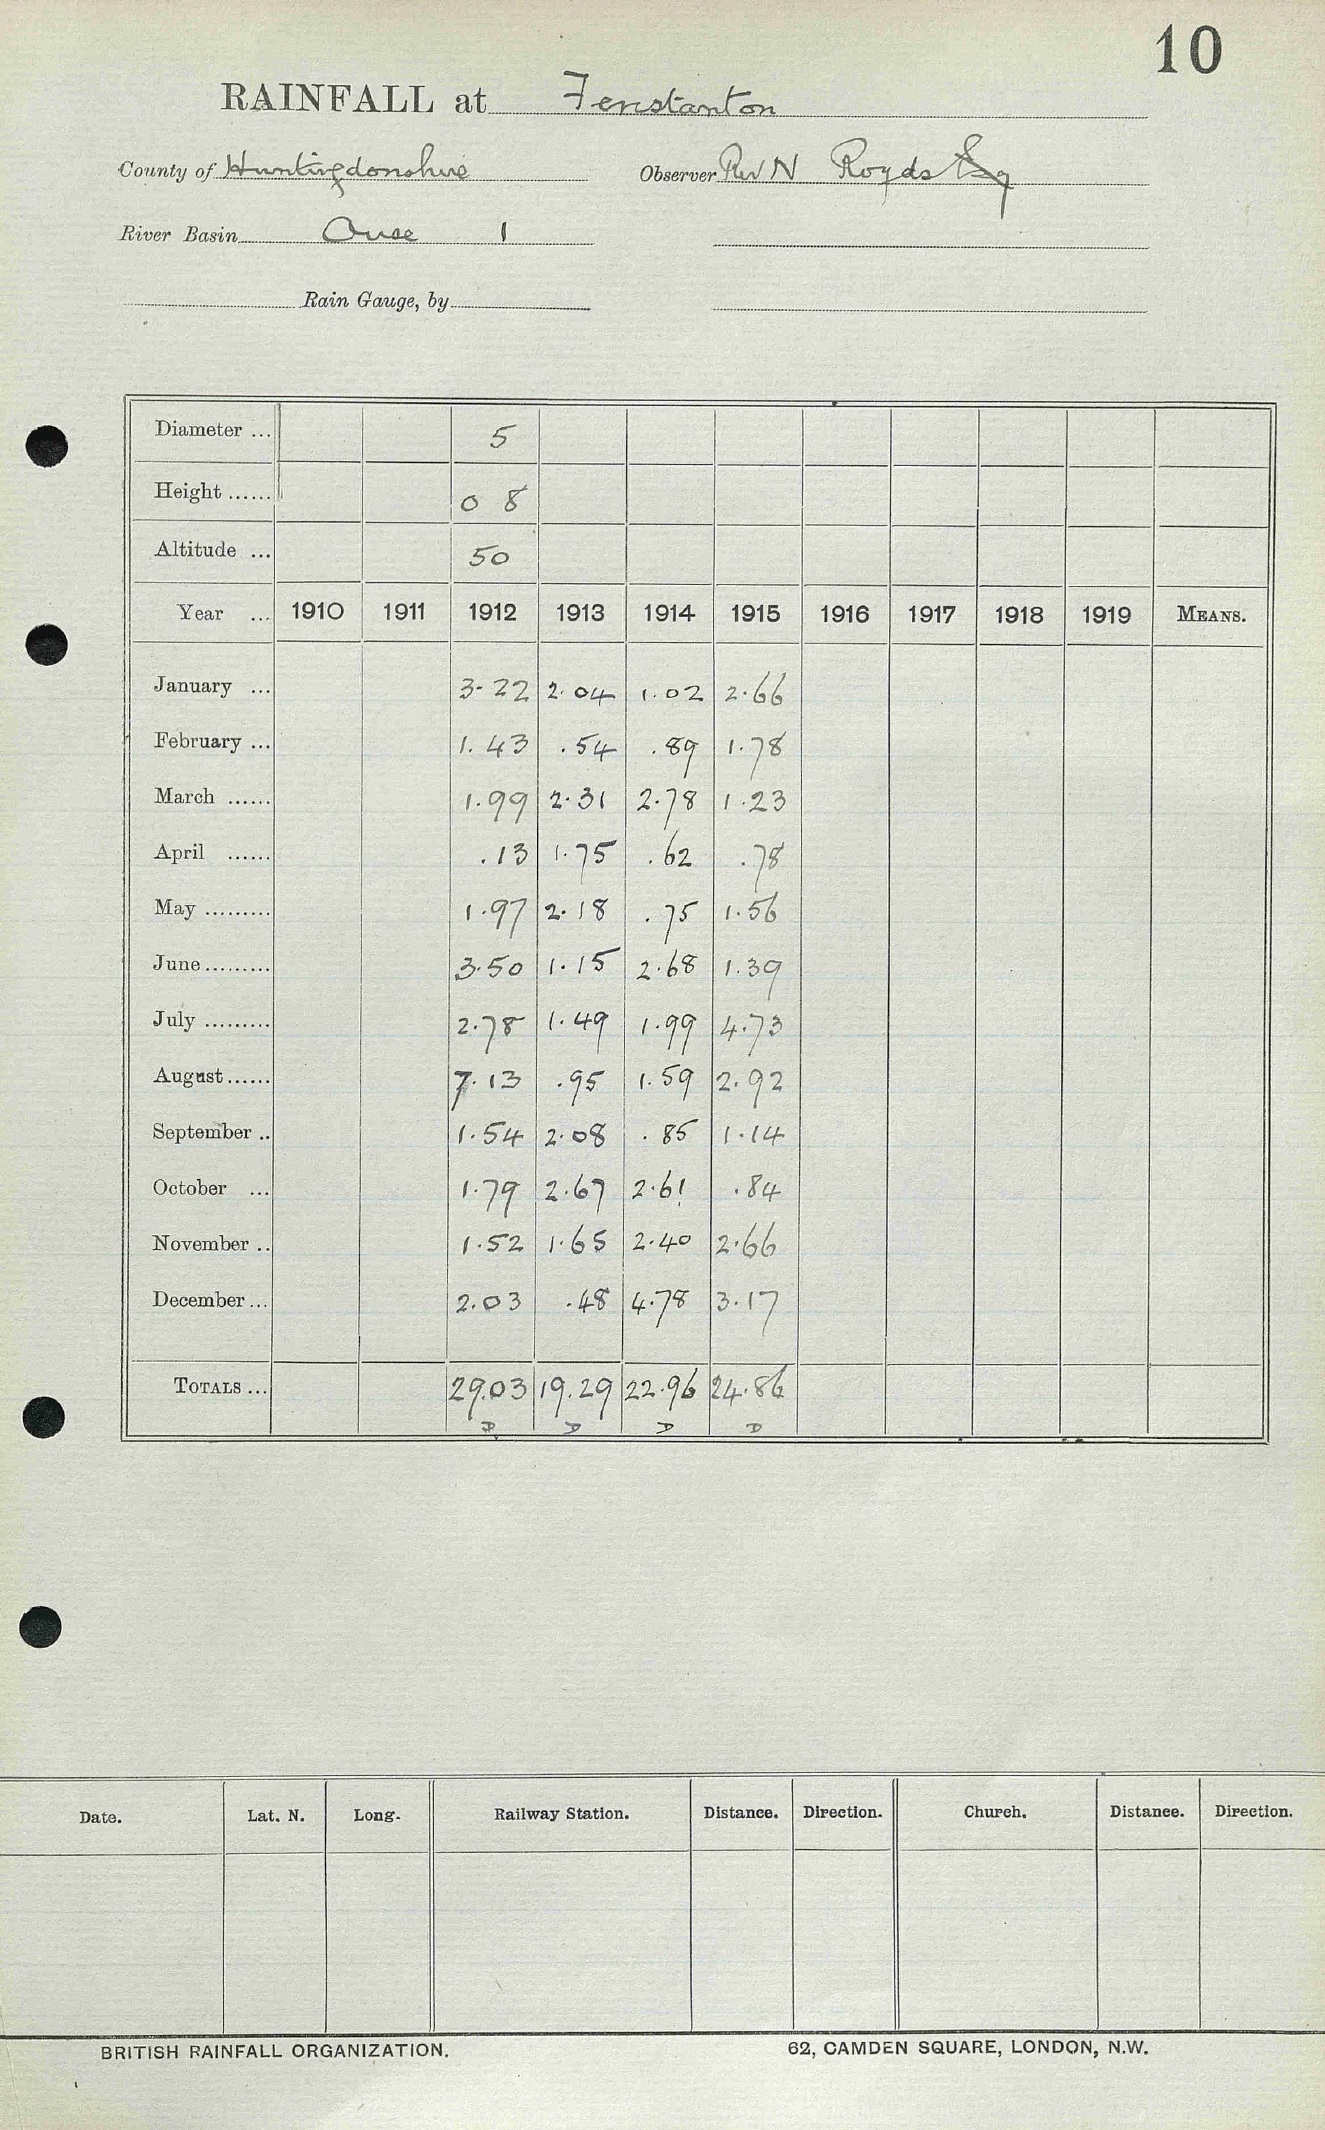 10
RAINFALL at Fenstanton
County of Huntingdonshire Observer Rev N Royds Esq
River Basin Ouse 1
Rain Gauge, by
Diameter ... 5
Height ...... 0 8
Altitude ... 50
Year ... 1910 1911 1912 1913 1914 1915 1916 1917 1918 1919 MEANS.
January ... 3.22 2.04 1.02 2.66
February ... 1.43 .54 .89 1.78
March ...... 1.99 2.31 2.78 1.23
April ...... .13 1.75 .62 .78
May ......... 1.97 2.18 .75 1.56
June ......... 3.50 1.15 2.68 1.39
July ......... 2.78 1.49 1.99 4.73
August ...... 7.13 .95 1.59 2.92
September .. 1.54 2.08 .85 1.14
October ... 1.79 2.67 2.61 .84
November .. 1.52 1.65 2.40 2.66
December ... 2.03 .48 4.78 3.17
TOTALS ... 29.03 19.29 22.96 24.86
D D D D
Date. Lat. N. Long. Railway Station. Distance. Direction. Church. Distance. Direction.
BRITISH RAINFALL ORGANIZATION. 62, CAMDEN SQUARE, LONDON, N.W.